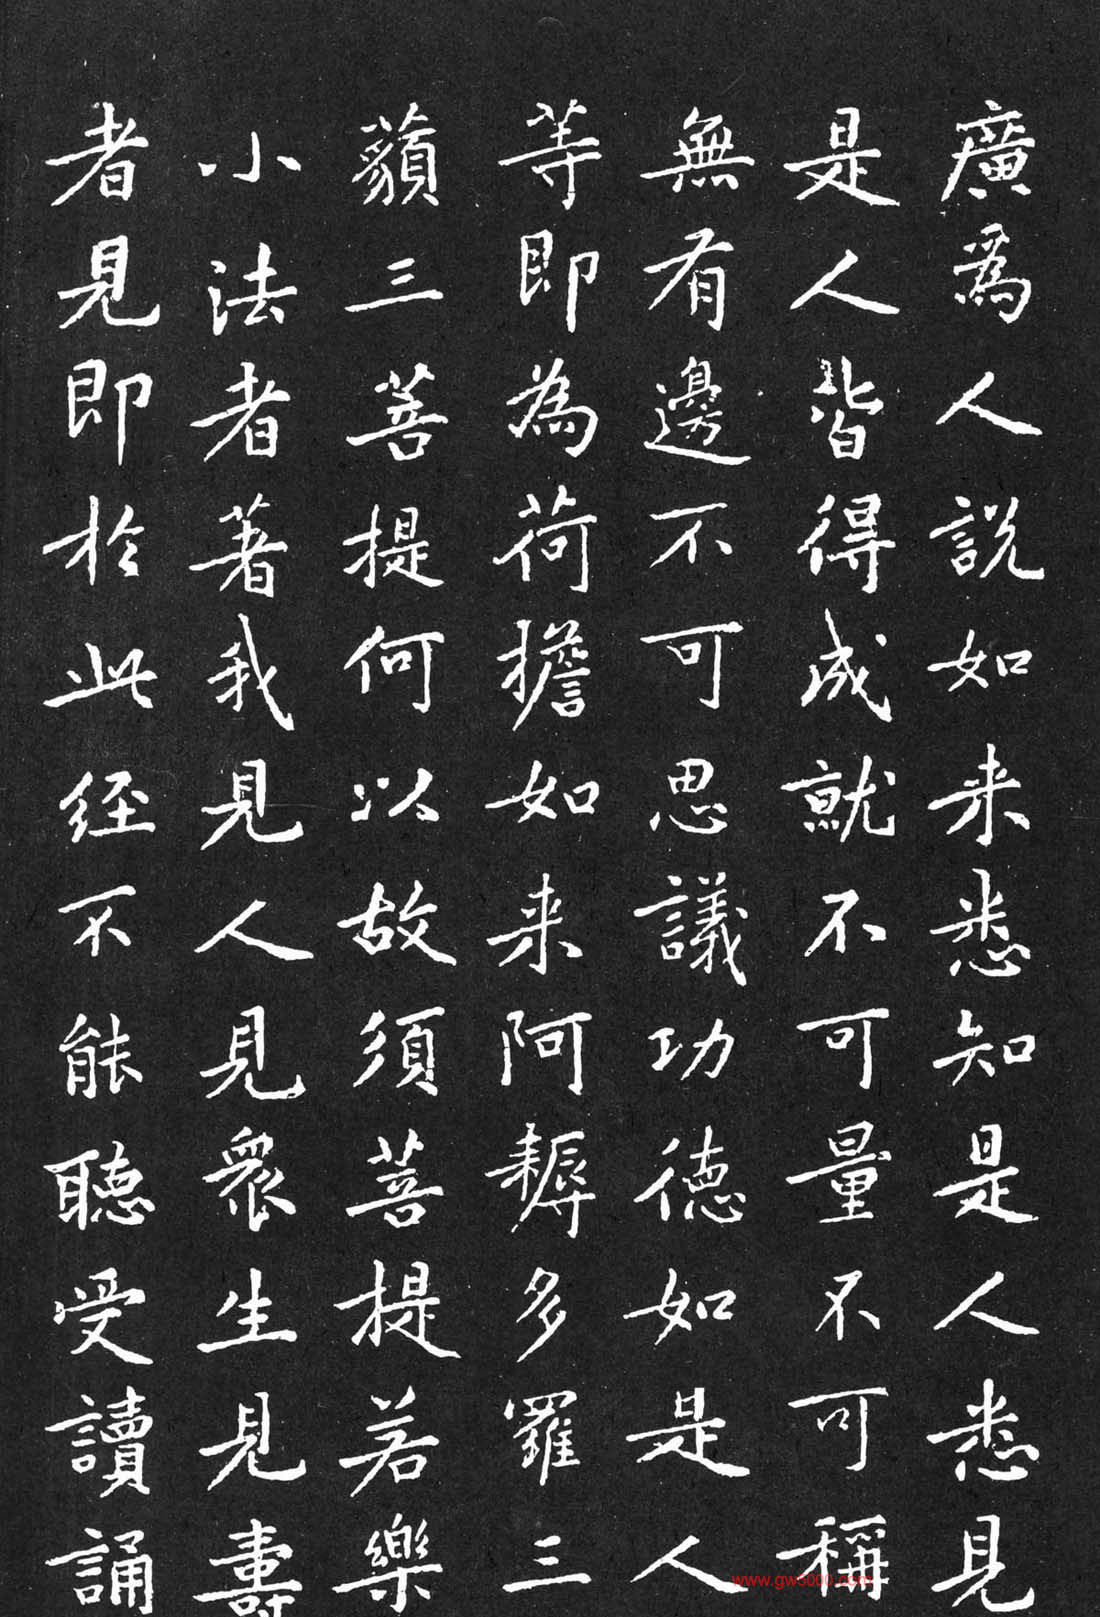 廣為人說如来悉知是人悉見
是人皆得成就不可量不可稱
無有邊不可思議功德如是人
等即為荷擔如来阿耨多羅三
藐三菩提何以故須菩提若樂
小法者著我見人見眾生見壽
者見即於此經不能聽受讀誦
www.gw5000.com